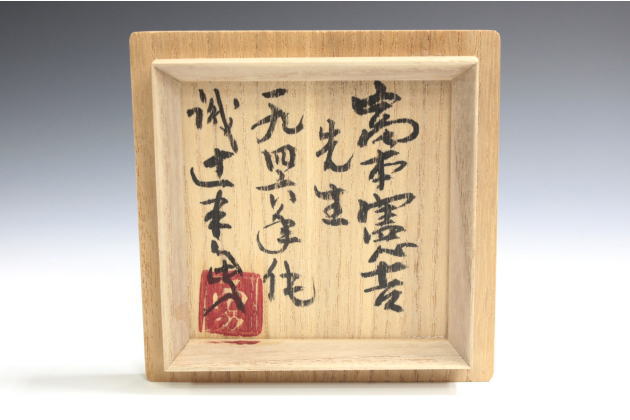 富本憲吉
先生
一九四六年作
識 辻本勇